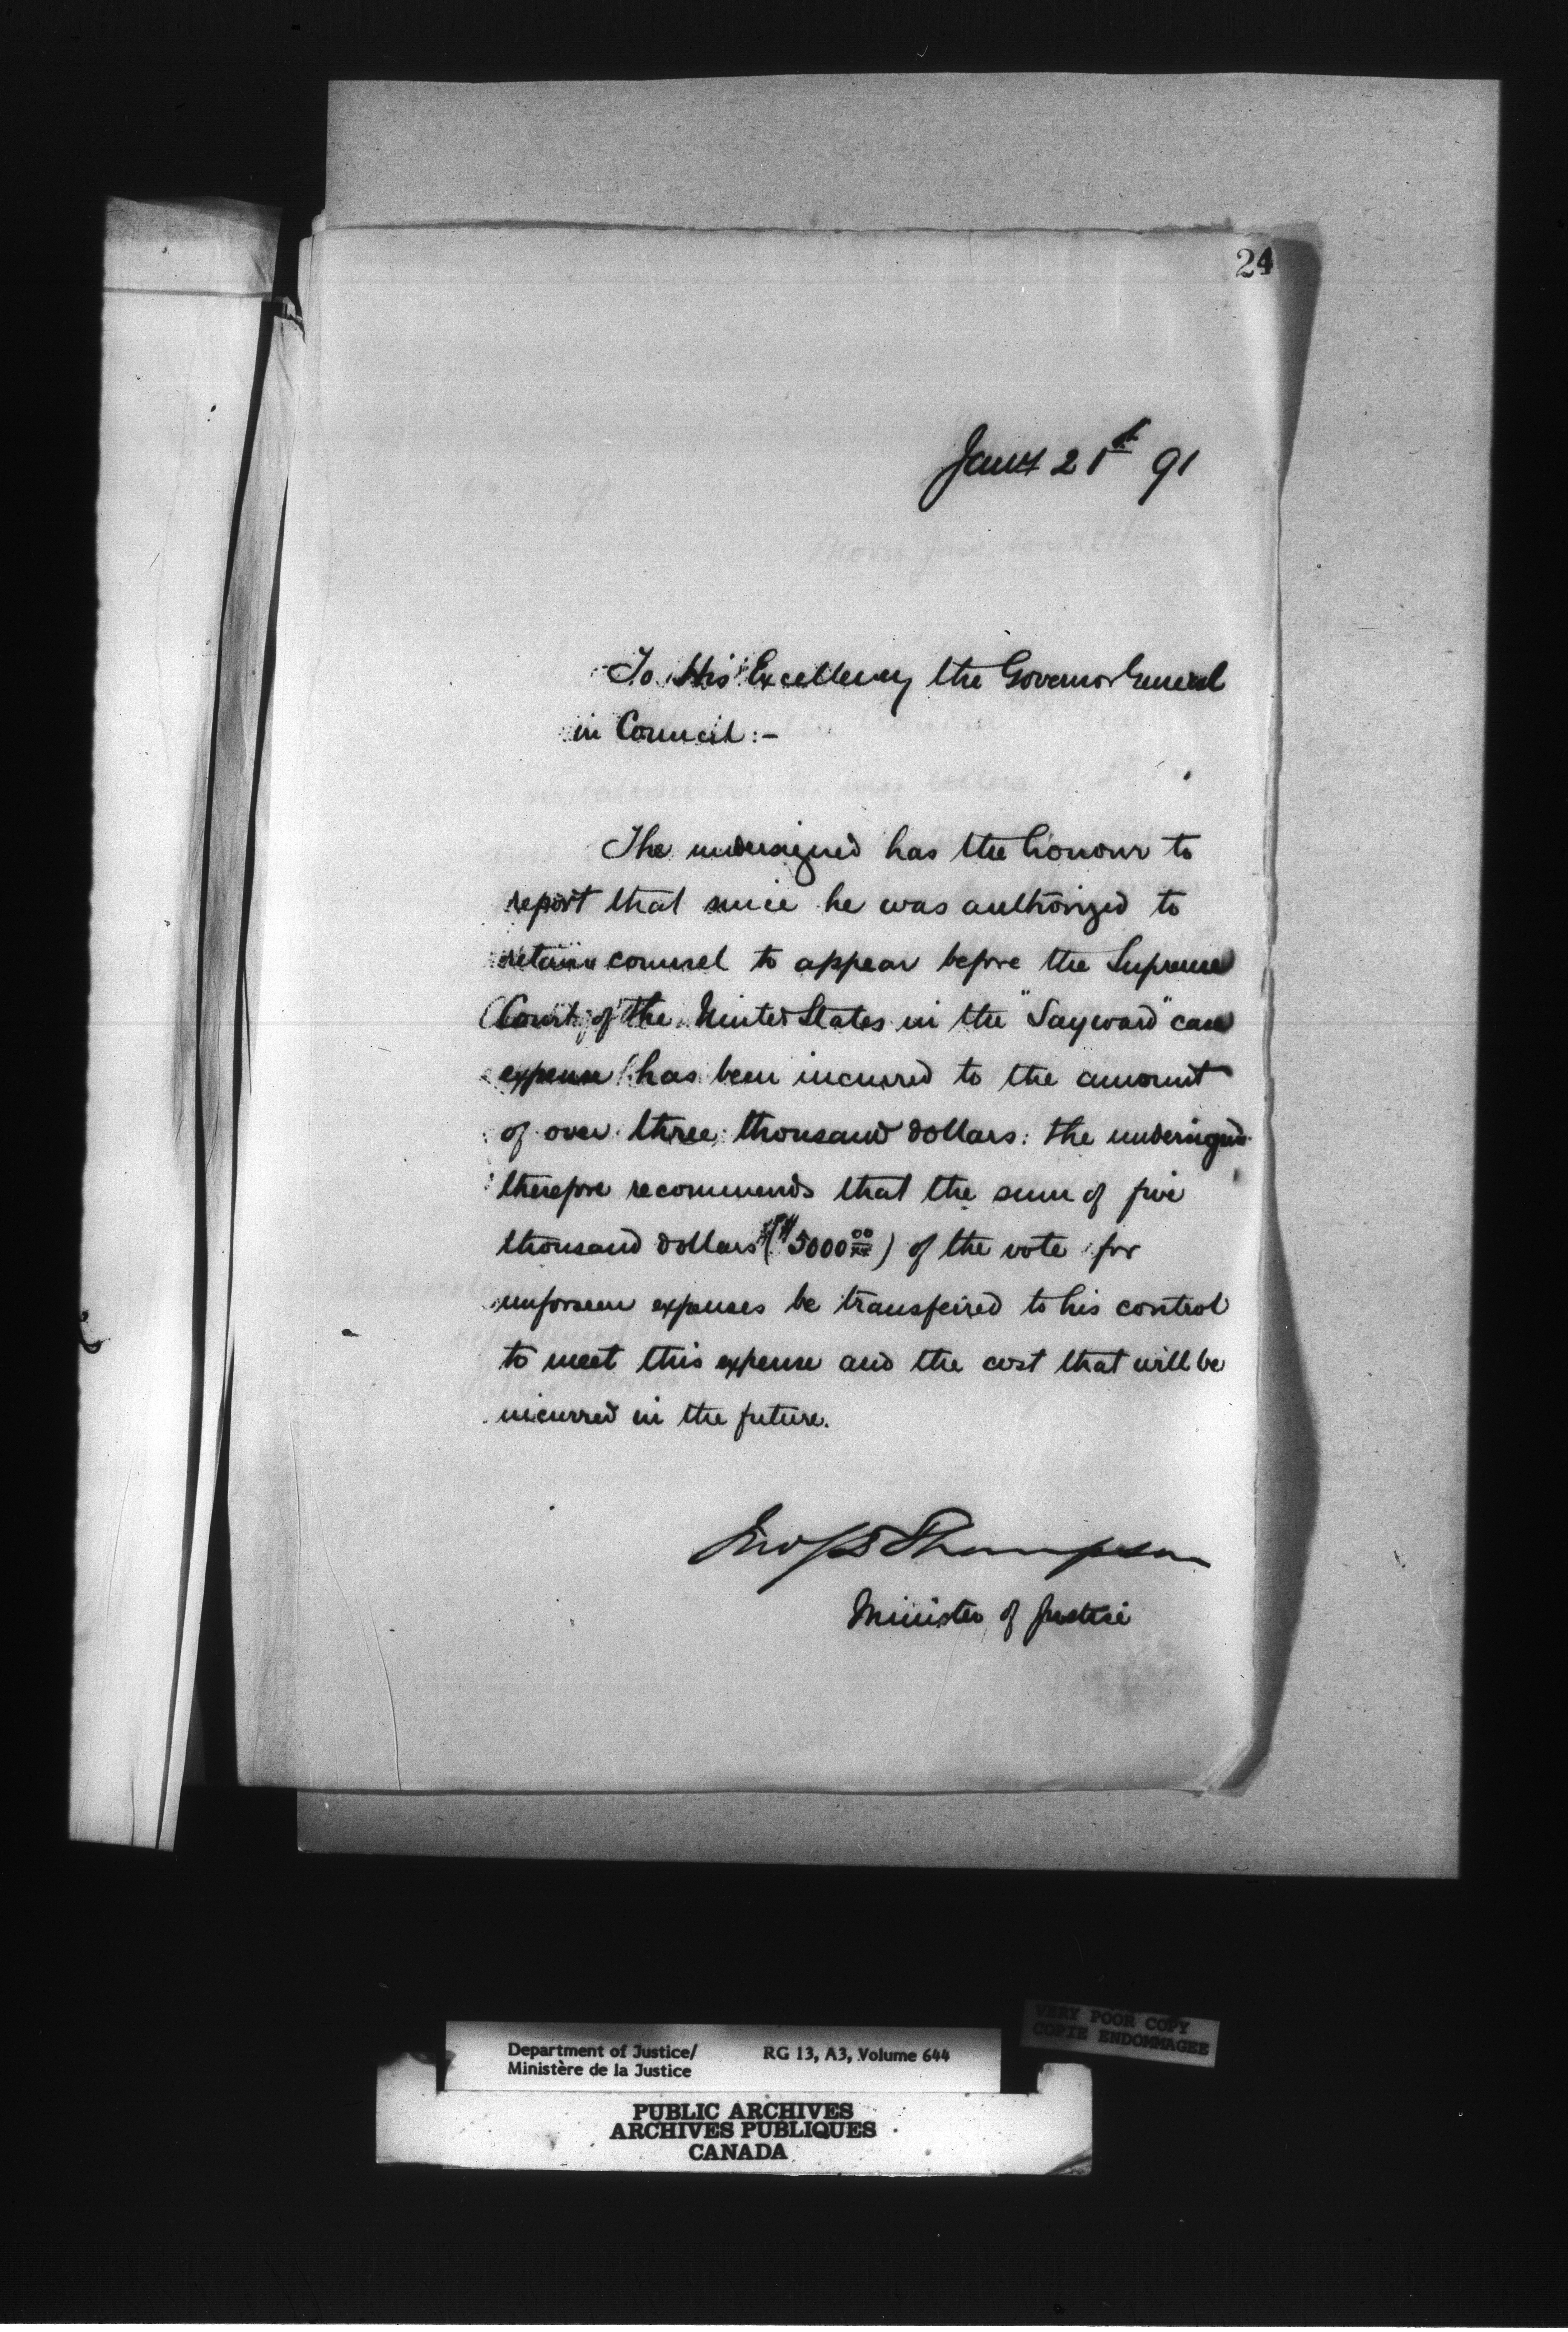 24
Jany 21st 91
To His Excellency the Governor General
in Council:-
The undersigned has the honour to
report that since he was authorized to
retain counsel to appear before the Supreme
Court of the United States in the "Sayward" case
expense has been incurred to the amount
of over three thousand dollars: the undersigned
therefore recommends that the sum of five
thousand dollars ($5000.00/xx) of the vote for
unforseen expenses be transferred to his control
to meet this expense and the cost that will be
incurred in the future.
Jno S D Thompson
Minister of Justice
VERY POOR COPY
COPIE ENDOMMAGEE
Department of Justice/ RG 13, A3, Volume 644
Ministère de la Justice
PUBLIC ARCHIVES
ARCHIVES PUBLIQUES
CANADA